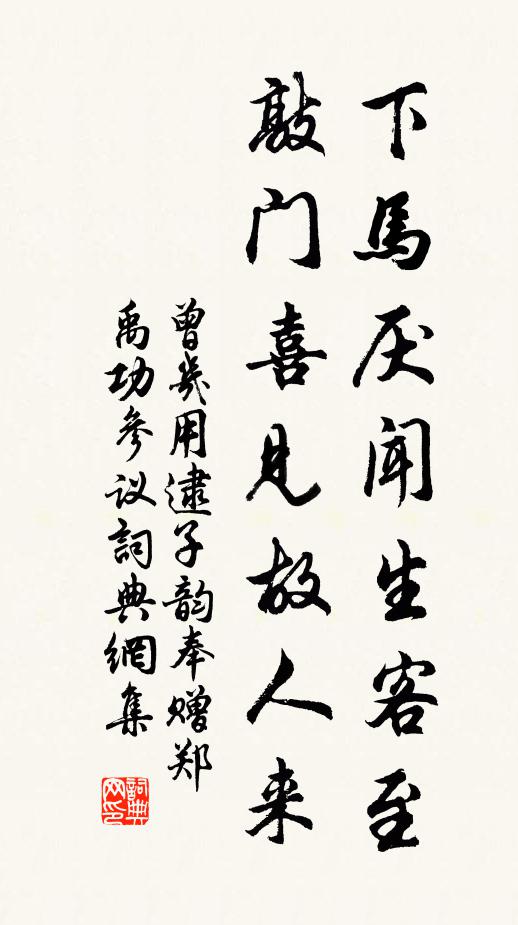 下馬厌闻生客至
敲门喜见故人来
曾几用逮子韵奉赠郑
禹功参议詞典網集
詞典
网印